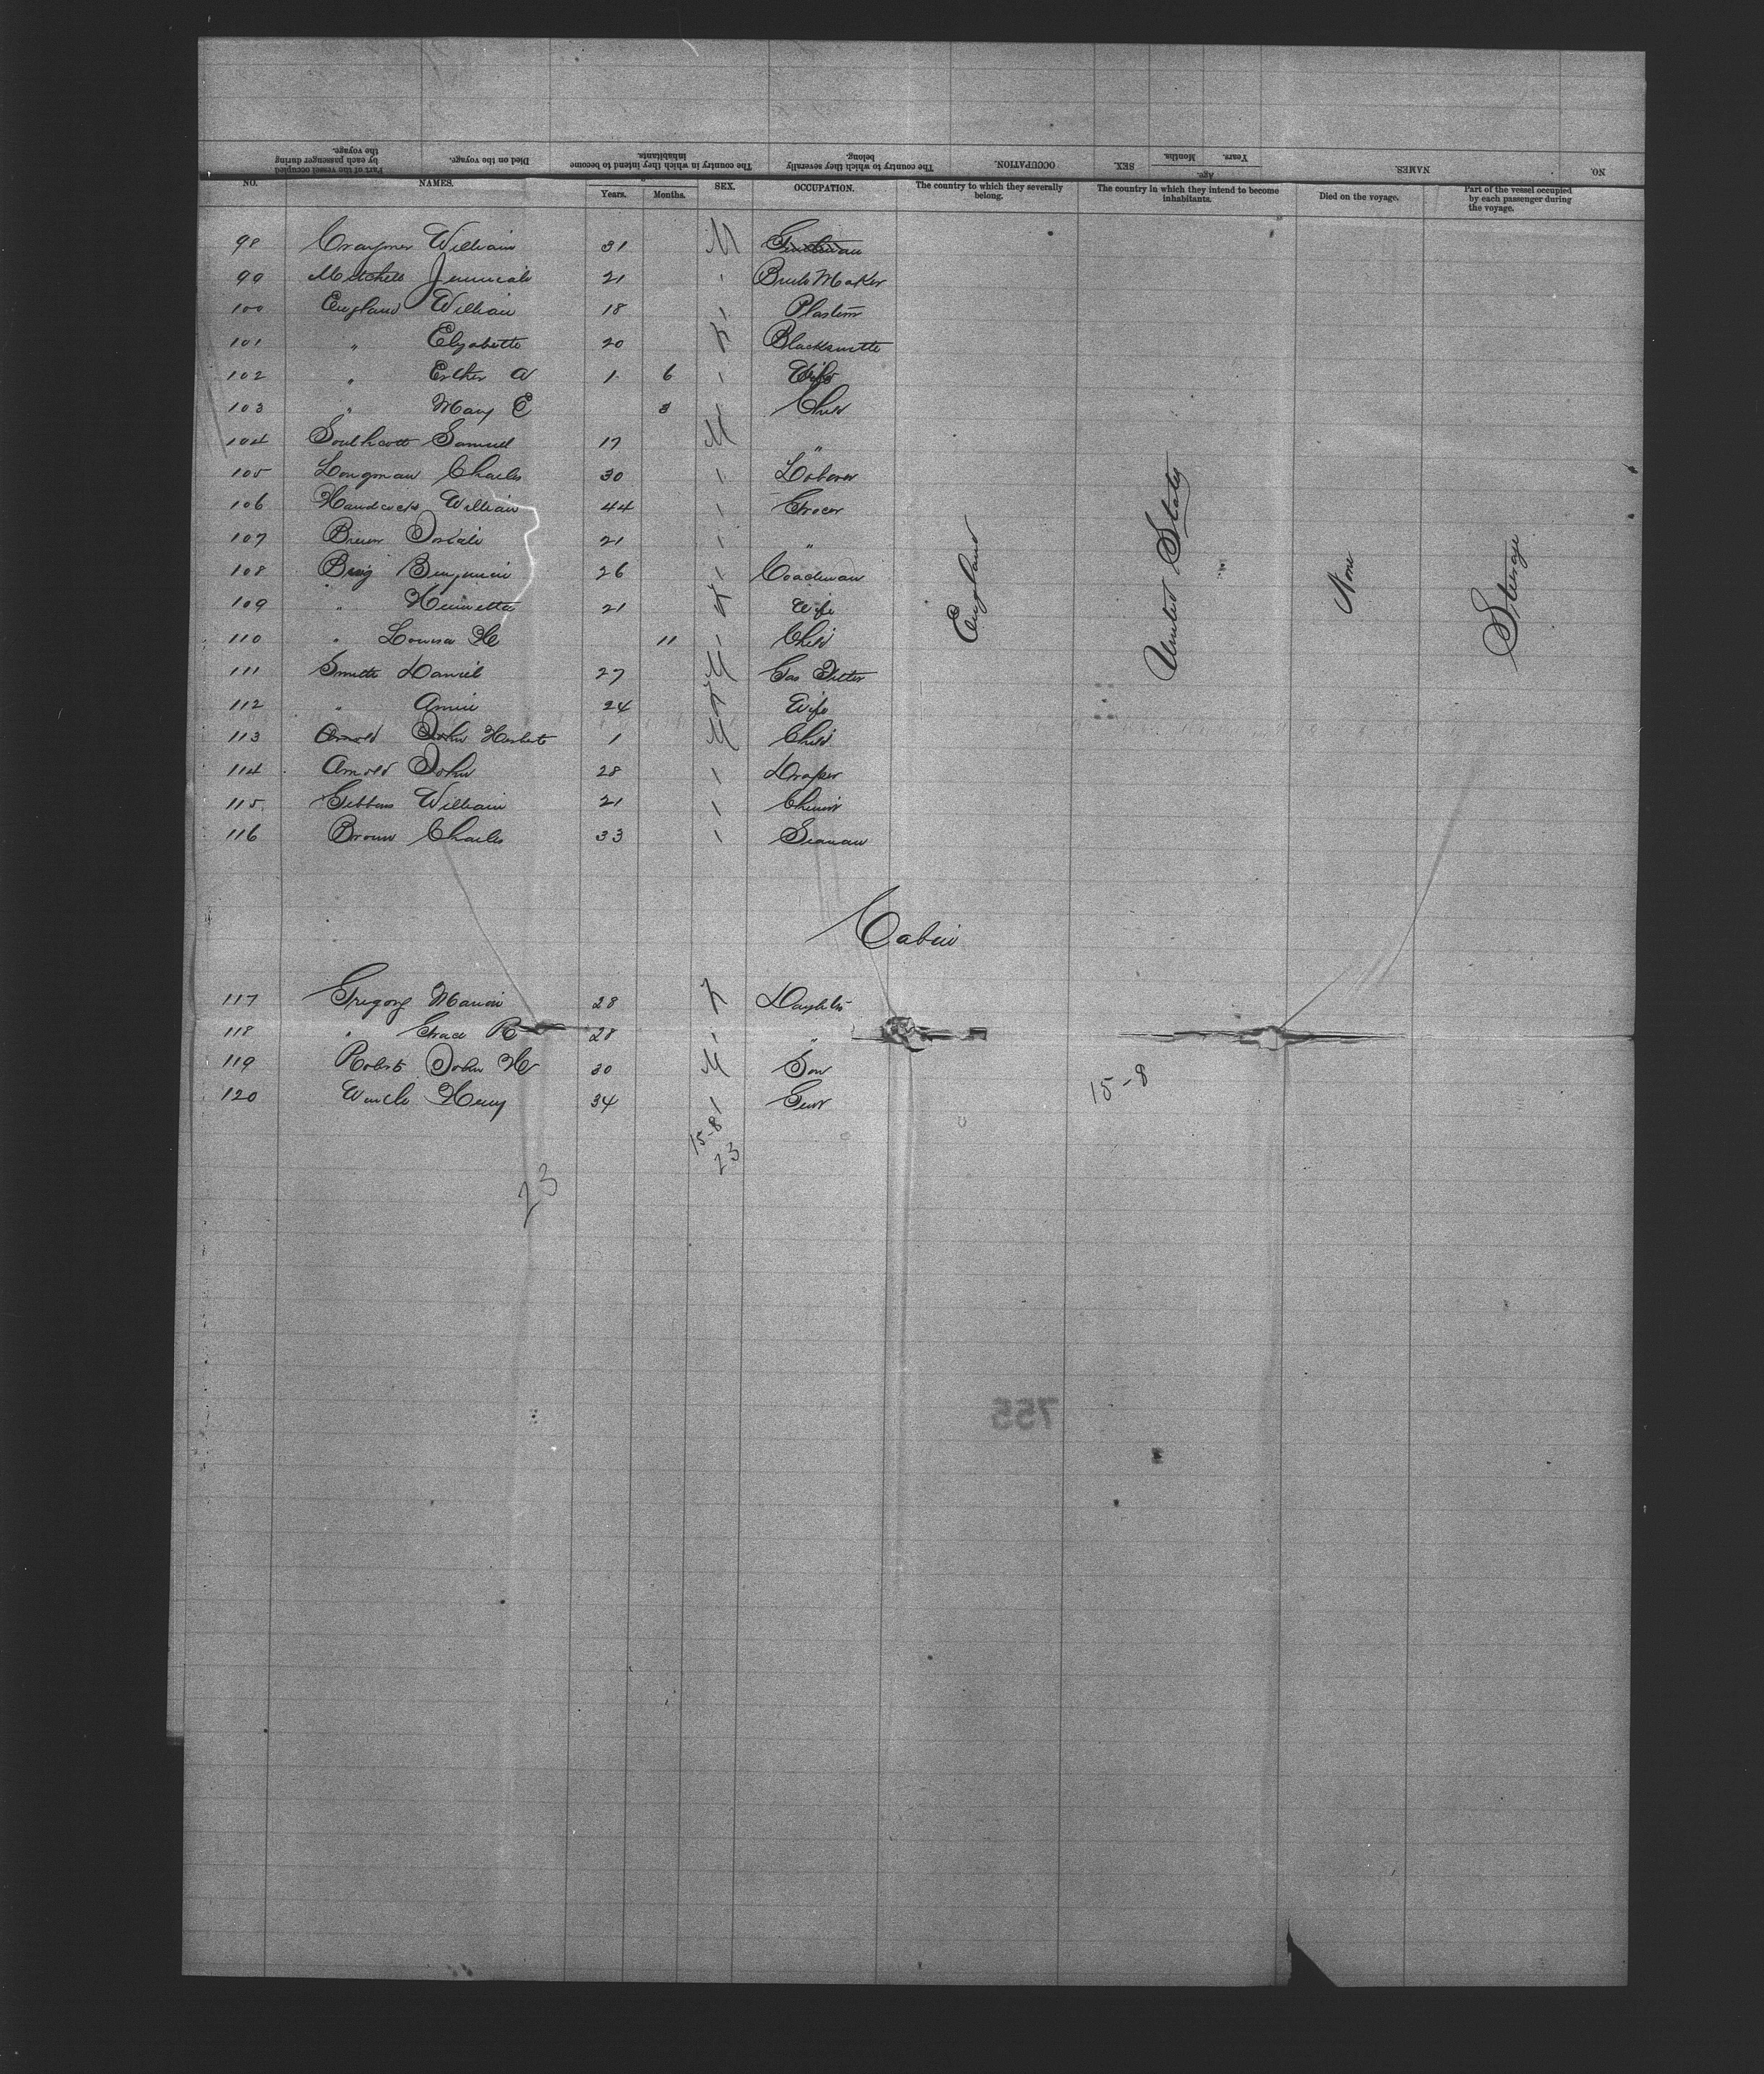 NO. NAMES. Age. Years. Months. SEX. OCCUPATION. The country to which they severally belong. The country in which they intend to become inhabitants. Died on the voyage. Part of the vessel occupied by each passenger during the voyage.
NO. NAMES. Years. Months. SEX. OCCUPATION. The country to which they severally belong. The country in which they intend to become inhabitants. Died on the voyage. Part of the vessel occupied by each passenger during the voyage.
98 William 31 M
99 Mitchell 21 " Maker
100 England William 18 "
101 " 20 F Blacksmith
102 " Esther A 1 6 " Wife
103 " Mary E 3 " Child
104 Southcott Samuel 17 M "
105 Longman Charles 30 " Laborer
106 William 44 " Grocer
107 21 " "
108 Benjamin 26 " Coachman
109 " Henrietta 21 F Wife
110 " Louisa H 11 " Child
111 Smith Daniel 27 M Gas Fitter
112 " Annie 24 F Wife
113 Arnold John Herbert 1 M Child
114 Arnold John 28 " Draper
115 Gibbons William 21 "
116 Brown Charles 33 " Seaman
England
United States
None
Steerage
Cabin
117 Gregory Marion 28 F
118 " Grace R 28 " "
119 Roberts John H 30 M Son
120 Henry 34 " Gent
15-8
15-8
23
23
755